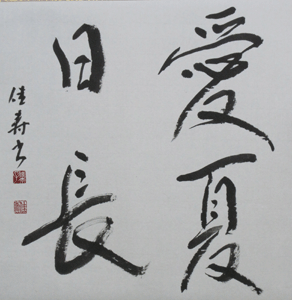 愛夏
日長
佳寿书